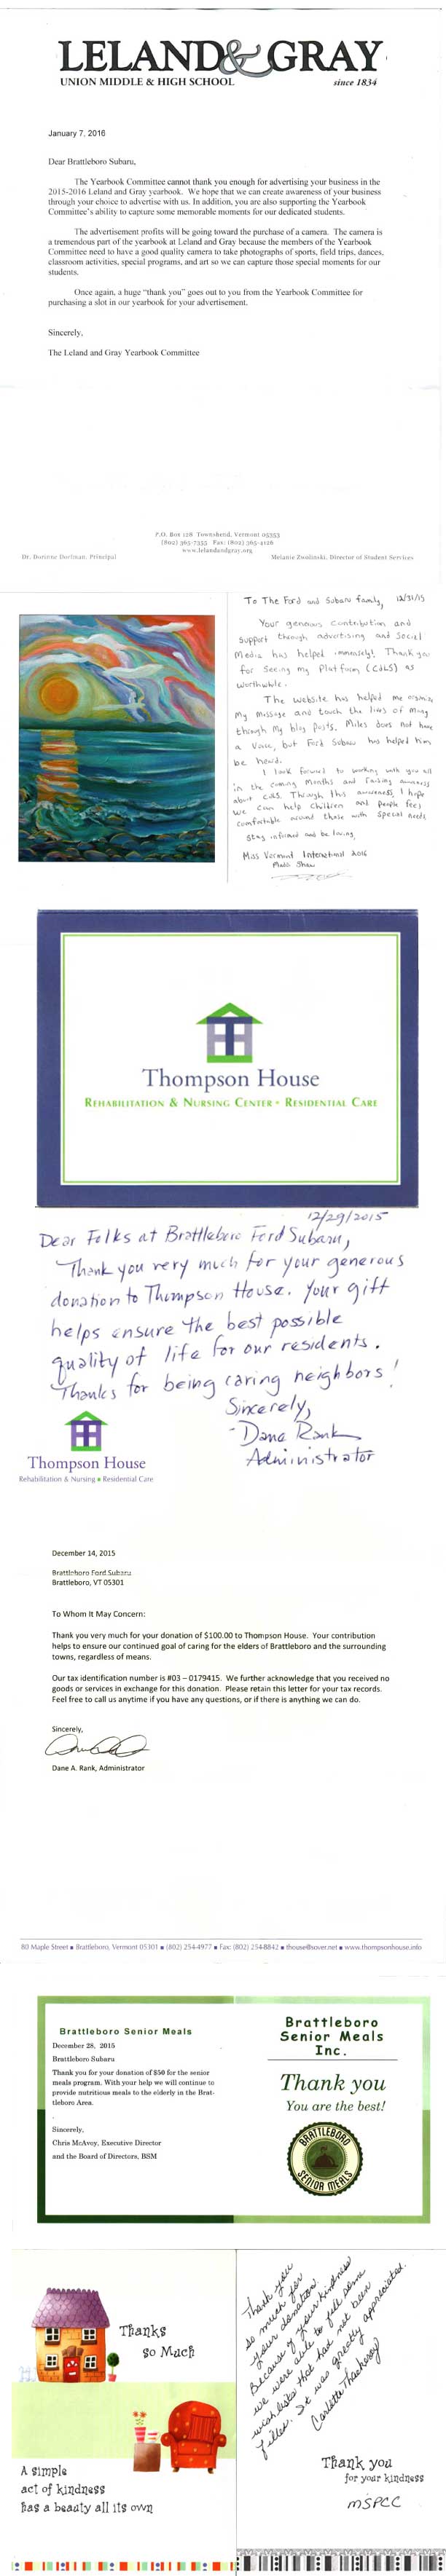 LELAND & GRAY
UNION MIDDLE & HIGH SCHOOL since 1834
January 7, 2016
Dear Brattleboro Subaru,
The Yearbook Committee cannot thank you enough for advertising your business in the
2015-2016 Leland and Gray yearbook. We hope that we can create awareness of your business
through your choice to advertise with us. In addition, you are also supporting the Yearbook
Committee's ability to capture some memorable moments for our dedicated students.
The advertisement profits will be going toward the purchase of a camera. The camera is
a tremendous part of the yearbook at Leland and Gray because the members of the Yearbook
Committee need to have a good quality camera to take photographs of sports, field trips, dances,
classroom activities, special programs, and art so we can capture those special moments for our
students.
Once again, a huge "thank you" goes out to you from the Yearbook Committee for
purchasing a slot in our yearbook for your advertisement.
Sincerely,
The Leland and Gray Yearbook Committee
P.O. Box 128 Townshend, Vermont 05353
(802) 365-7355 Fax: (802) 365-4126
www.lelandandgray.org
Dr. Dorinne Dorfman, Principal Melanie Zwolinski, Director of Student Services
To The Ford and Subaru family, 12/31/15
Your generous contribution and
support through advertising and Social
Media has helped immensely! Thank you
for seeing my Platform (CdLS) as
worthwhile.
The website has helped me organize
my message and touch the lives of many
through my blog posts. Miles does not have
a voice, but Ford Subaru has helped him
be heard.
I look forward to working with you all
in the coming months and raising awareness
about CdLS. Through this awareness, I hope
we can help children and people feel
comfortable around those with special needs.
Stay informed and be loving,
Miss Vermont International 2016
Shaw
Thompson House
REHABILITATION & NURSING CENTER • RESIDENTIAL CARE
12/29/2015
Dear Folks at Brattleboro Ford Subaru,
Thank you very much for your generous
donation to Thompson House. Your gift
helps ensure the best possible
quality of life for our residents.
Thanks for being caring neighbors!
Sincerely,
Dane Rank
Administrator
Thompson House
Rehabilitation & Nursing • Residential Care
December 14, 2015
Brattleboro Ford Subaru
Brattleboro, VT 05301
To Whom It May Concern:
Thank you very much for your donation of $100.00 to Thompson House. Your contribution
helps to ensure our continued goal of caring for the elders of Brattleboro and the surrounding
towns, regardless of means.
Our tax identification number is #03 – 0179415. We further acknowledge that you received no
goods or services in exchange for this donation. Please retain this letter for your tax records.
Feel free to call us anytime if you have any questions, or if there is anything we can do.
Sincerely,
Dane A. Rank, Administrator
80 Maple Street ■ Brattleboro, Vermont 05301 ■ (802) 254-4977 ■ Fax: (802) 254-8842 ■ thouse@sover.net ■ www.thompsonhouse.info
Brattleboro Senior Meals
December 28, 2015
Brattleboro Subaru
Thank you for your donation of $50 for the senior
meals program. With your help we will continue to
provide nutritious meals to the elderly in the Brat-
tleboro Area.
.
Sincerely,
Chris McAvoy, Executive Director
and the Board of Directors, BSM
Brattleboro
Senior Meals
Inc.
Thank you
You are the best!
BRATTLEBORO
SENIOR MEALS
Thanks
so Much
A simple
act of kindness
has a beauty all its own
Thank you
so much for
your donation.
Because of your kindness
we were able to fill some
wish lists that had not been
filled. It was greatly appreciated.
Carlotta
Thank you
for your kindness
MSPCC